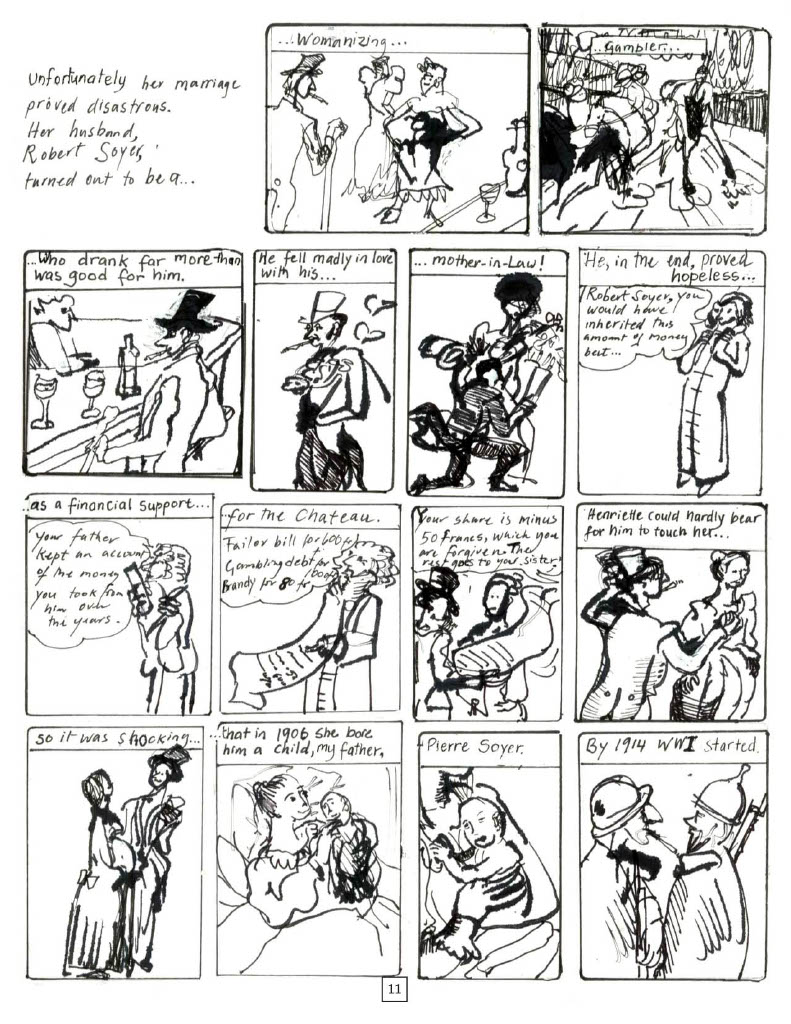 Unfortunately her marriage
proved disastrous.
Her husband,
Robert Soyer,
turned out to be a...
...Womanizing...
...Gambler...
...Who drank far more than
was good for him.
He fell madly in love
with his...
...mother-in-Law!
He, in the end, proved
hopeless...
Robert Soyer, you
would have
inherited this
amount of money
but...
...as a financial support...
Your father
kept an account
of the money
you took from
him over
the years.
...for the Chateau.
Tailor bill for 600 fr
Gambling debt for 600 fr
Brandy for 80 fr
Your share is minus
50 francs, which you
are forgiven. The
rest goes to your sister.
Henriette could hardly bear
for him to touch her...
so it was shocking...
...that in 1906 she bore
him a child, my father,
Pierre Soyer.
By 1914 WWI started.
11